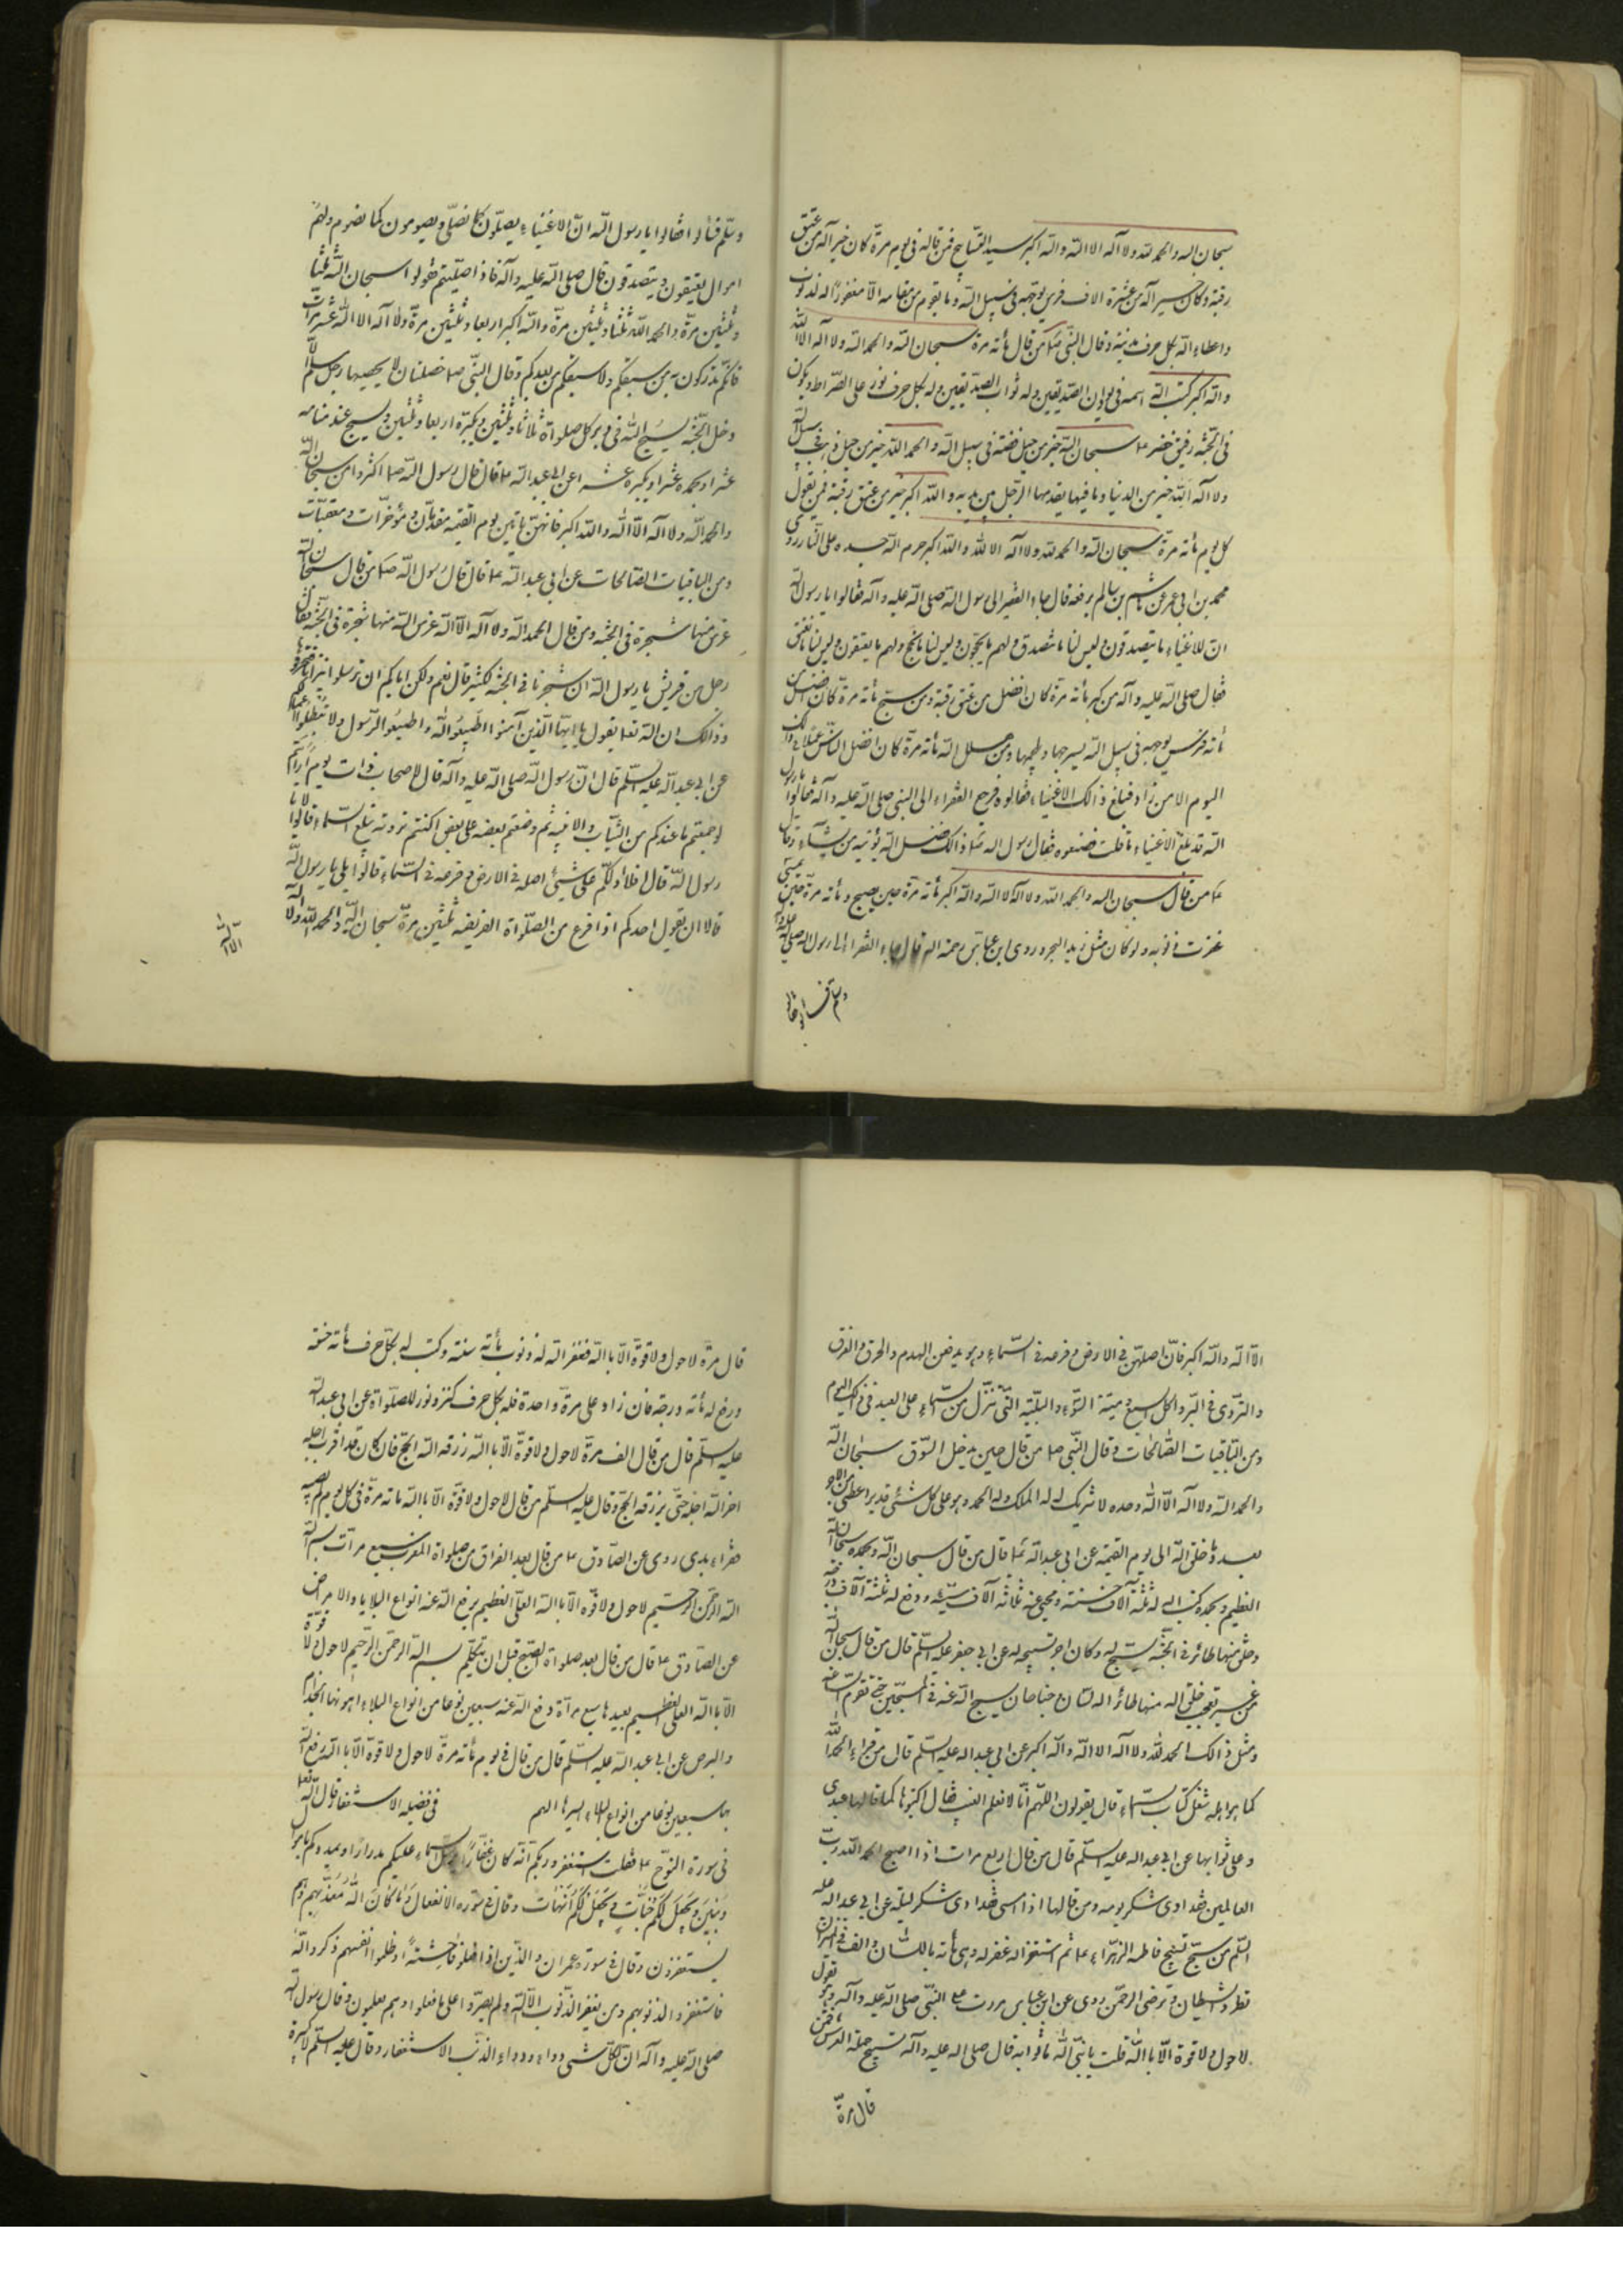 سبحان الله والحمد لله ولا اله الا الله والله اكبر سيد التسابيح فمن قاله في يوم مرة كان خير اله من عتق
رقبة وكان خير اله من عشرة الاف فرس يوجهه في سبيل الله وما يقوم من مقامه الا مغفورًا له الذنوب
واعطاه الله بكل حرف مدينة وقال النبي ص من قال مأته مرة سبحان الله والحمد الله ولا اله الا الله
والله اكبر كتب الله اسمه في ديوان الصديقين وله ثواب الصديقين وله بكل حرف نور على الصراط ويكون
في الجنة رفيق خضر ع سبحان الله خير من جبل فضة في سبيل الله والحمد الله خير من جبل ذهب في سبيل الله
ولا اله الا الله خير من الدنيا وما فيها يقدمها الرجل بين يديه والله اكبر خير من عتق رقبة فمن يقول
كل يوم مأته مرة سبحان الله والحمد لله ولا اله الا الله والله اكبر حرم الله جسده على النار روى
محمد بن ابي عمير عن هاشم بن سالم يرفعه قال جاء الفقير الى رسول الله صلى الله عليه وآله فقالوا يا رسول الله
ان للاغنياء ما يتصدقون وليس لنا ما نتصدق ولهم ما يحجون وليس لنا ما نحج ولهم ما يعتقون وليس لنا ما نعتق
فقال صلى الله عليه وآله من كبر مأته مرة كان افضل من عتق رقبة ومن سبح مأته مرة كان افضل من
مأته فرس يوجهه في سبيل الله يسرجها ويلجمها ومن هلل الله مأته مرة كان افضل الناس عملا في ذالك
اليوم الا من زاد فبلغ ذالك الاغنياء فقالوه فرجع الفقراء الى النبي صلى الله عليه وآله فقالوا يا رسول
الله قد بلغ الاغنياء ما قلت فصنعوه فقال رسول الله ص ذالك فضل الله يؤتيه من يشاء وقال
ع من قال سبحان الله والحمد الله ولا اله الا الله والله اكبر مأته مرة حين يصبح ومأته مرة حين يمسي
غفرت ذنوبه ولو كان مثل زبد البحر وروى ابن عباس رحمة الله قال جاء الفقراء الى رسول الله صلى الله عليه وآله
وسلم فقالوا
وسلم فقالوا يا رسول الله ان الاغنياء يصلون كما نصلي ويصومون كما نصوم ولهم
اموال يعتقون ويتصدقون قال صلى الله عليه وآله فاذا صليتم فقولوا سبحان الله ثلثا
وثلثين مرة والحمد الله ثلثا وثلثين مرة والله اكبر اربعا وثلثين مرة ولا اله الا الله عشر مرات
فانكم تدركون به من سبقكم ولا يسبقكم من بعدكم وقال النبي ص خصلتان لا يحصيها رجل مسلم الا
دخل الجنة يسبح الله في دبر كل صلواة ثلاثا وثلثين ويكبره اربعا وثلثين ويسبح عند منامه
عشرا ويحمده عشرا ويكبره عشرا عن ابي عبد الله ع قال قال رسول الله ص اكثروا من سبحان الله
والحمد الله ولا اله الا الله والله اكبر فانهن ياتين يوم القيمة مقدمات ومؤخرات ومعقبات
ومن الباقيات الصالحات عن ابي عبد الله ع قال قال رسول الله ص من قال سبحان الله
غرس منها شجرة في الجنة ومن قال الحمد الله ولا اله الا الله غرس الله منها شجرة في الجنة فقال
رجل من قريش يا رسول الله ان شجرنا في الجنة كثير قال نعم ولكن اياكم ان ترسلوا نيرانا فتحرقوها
وذالك ان الله تعا يقول يا ايها الذين آمنوا اطيعوا الله واطيعوا الرسول ولا تبطلوا اعمالكم
عن ابي عبد الله عليه السلم قال ان رسول الله صلى الله عليه وآله قال لاصحابه ذات يوم أرأيتم
لو جمعتم ما عندكم من الثياب والانية ثم وضعتم بعضه على بعض اكنتم ترونه تبلغ السماء قالوا لا يا
رسول الله قال افلا ادلكم على شيئ اصله في الارض وفرعه في السماء قالوا بلى يا رسول الله
قالا ان يقول احدكم اذا فرغ من الصلواة الفريضه ثلثين مرة سبحان الله والحمد لله ولا اله
الا الله
الا الله والله اكبر فان اصلهن في الارض وفرعه في السماء وهو يدفعن الهدم والحرق والغرق
والتردى في البئر واكل السبع وميتة السوء والبلية التي تنزل من السماء على العبد في ذلك اليوم
ومن الباقيات الصالحات وقال النبي ص من قال حين يدخل السوق سبحان الله
والحمد الله ولا اله الا الله وحده لا شريك له له الملك وله الحمد وهو على كل شئ قدير اعطى من الاجر
بعدد ما خلق الله الى يوم القيمة عن ابي عبد الله ع قال من قال سبحان الله وبحمده سبحان الله
العظيم وبحمده كتب الله له ثلثة آلاف حسنة ومحى عنه ثلاثه آلاف سيئة ورفع له ثلثة آلاف درجة
وخلق منها طائر في الجنة يسبح له وكان اجر تسبيحه له عن ابي جعفر عليه السلم قال من قال سبحان الله
من غير تعجب خلق الله منها طائرا له لسان وجناحان يسبح الله عنه في المسبحين حتى تقوم الساعة
ومثل ذالك الحمد لله ولا اله الا الله والله اكبر عن ابي عبد الله عليه السلم قال من قراء الحمد الله
كما هو اهله شغل كتاب السماء قال يقولون اللهم انا لا نعلم الغيب فقال اكتبوها كما قالها عبدى
وعلى ثوابها عن ابي عبد الله عليه السلم قال من قال اربع مرات اذا اصبح الحمد الله رب
العالمين فقد ادى شكر يومه ومن قالها اذا امسى فقد ادى شكر ليلته عن ابي عبد الله عليه
السلم من سبح تسبيح فاطمه الزهراء ع ثم استغفر الله غفر له وهى مأته باللسان والف في الميزان
تطرد الشيطان وترضى الرحمن روى عن ابن عباس مررت على النبي صلى الله عليه وآله وهو يقول
لا حول ولا قوة الا بالله قلت يا نبي الله ما ثوابه قال صلى الله عليه وآله تسبيح حملة العرش فمن
قال مرة
قال مرة لا حول ولا قوة الا بالله فغفر الله له ذنوب مأته سنة وكتب له بكل حرف مأته حسنة
ورفع له مأته درجة فان زاد على مرة واحدة فله بكل حرف كنز ونور للصلواة عن ابي عبد الله
عليه السلم قال من قال الف مرة لا حول ولا قوة الا بالله رزقه الله الحج فان كان قد اقرب اجله
اخر الله اجله حتى يرزقه الحج وقال عليه السلم من قال لا حول ولا قوة الا بالله مأته مرة في كل يوم لم يصبه
فقراء بدى روى عن الصادق ع من قال بعد الفراق من صلواة المغرب سبع مرات بسم الله
الله الرحمن الرحيم لا حول ولا قوة الا بالله العلي العظيم يرفع الله عنه انواع البلايا والامراض
عن الصادق ع قال من قال بعد صلواة الصبح قبل ان يتكلم بسم الله الرحمن الرحيم لا حول ولا قوة
الا بالله العلي العظيم يعيدها سبع مرأة دفع الله عنه سبعين نوعا من انواع البلاء اهونها الجذام
والبرص عن ابي عبد الله عليه السلم قال من قال في يوم مأته مرة لا حول ولا قوة الا بالله يرفع الله
بها سبعين نوعا من انواع البلاء ايسرها الهم في فضيلة الاستغفار قال الله تعا
في سورة النوح ع فقلت استغفروا ربكم انه كان غفارًا يرسل السماء عليكم مدرارًا ويمددكم باموال
وبنين ويجعل لكم جنات ويجعل لكم انهات وقال في سوره الانفعال ما كان الله معذبهم وهم
يستغفرون وقال في سورة عمران والذين اذا فعلوا فاحشة او ظلموا انفسهم ذكروا الله
فاستغفروا الذنوبهم ومن يغفر الذنوب الا الله ولم يصروا على ما فعلوا وهم يعلمون وقال رسول الله
صلى الله عليه وآله ان لكل شئ دواء ودواء الذنب الاستغفار وقال عليه السلم لا كبيرة